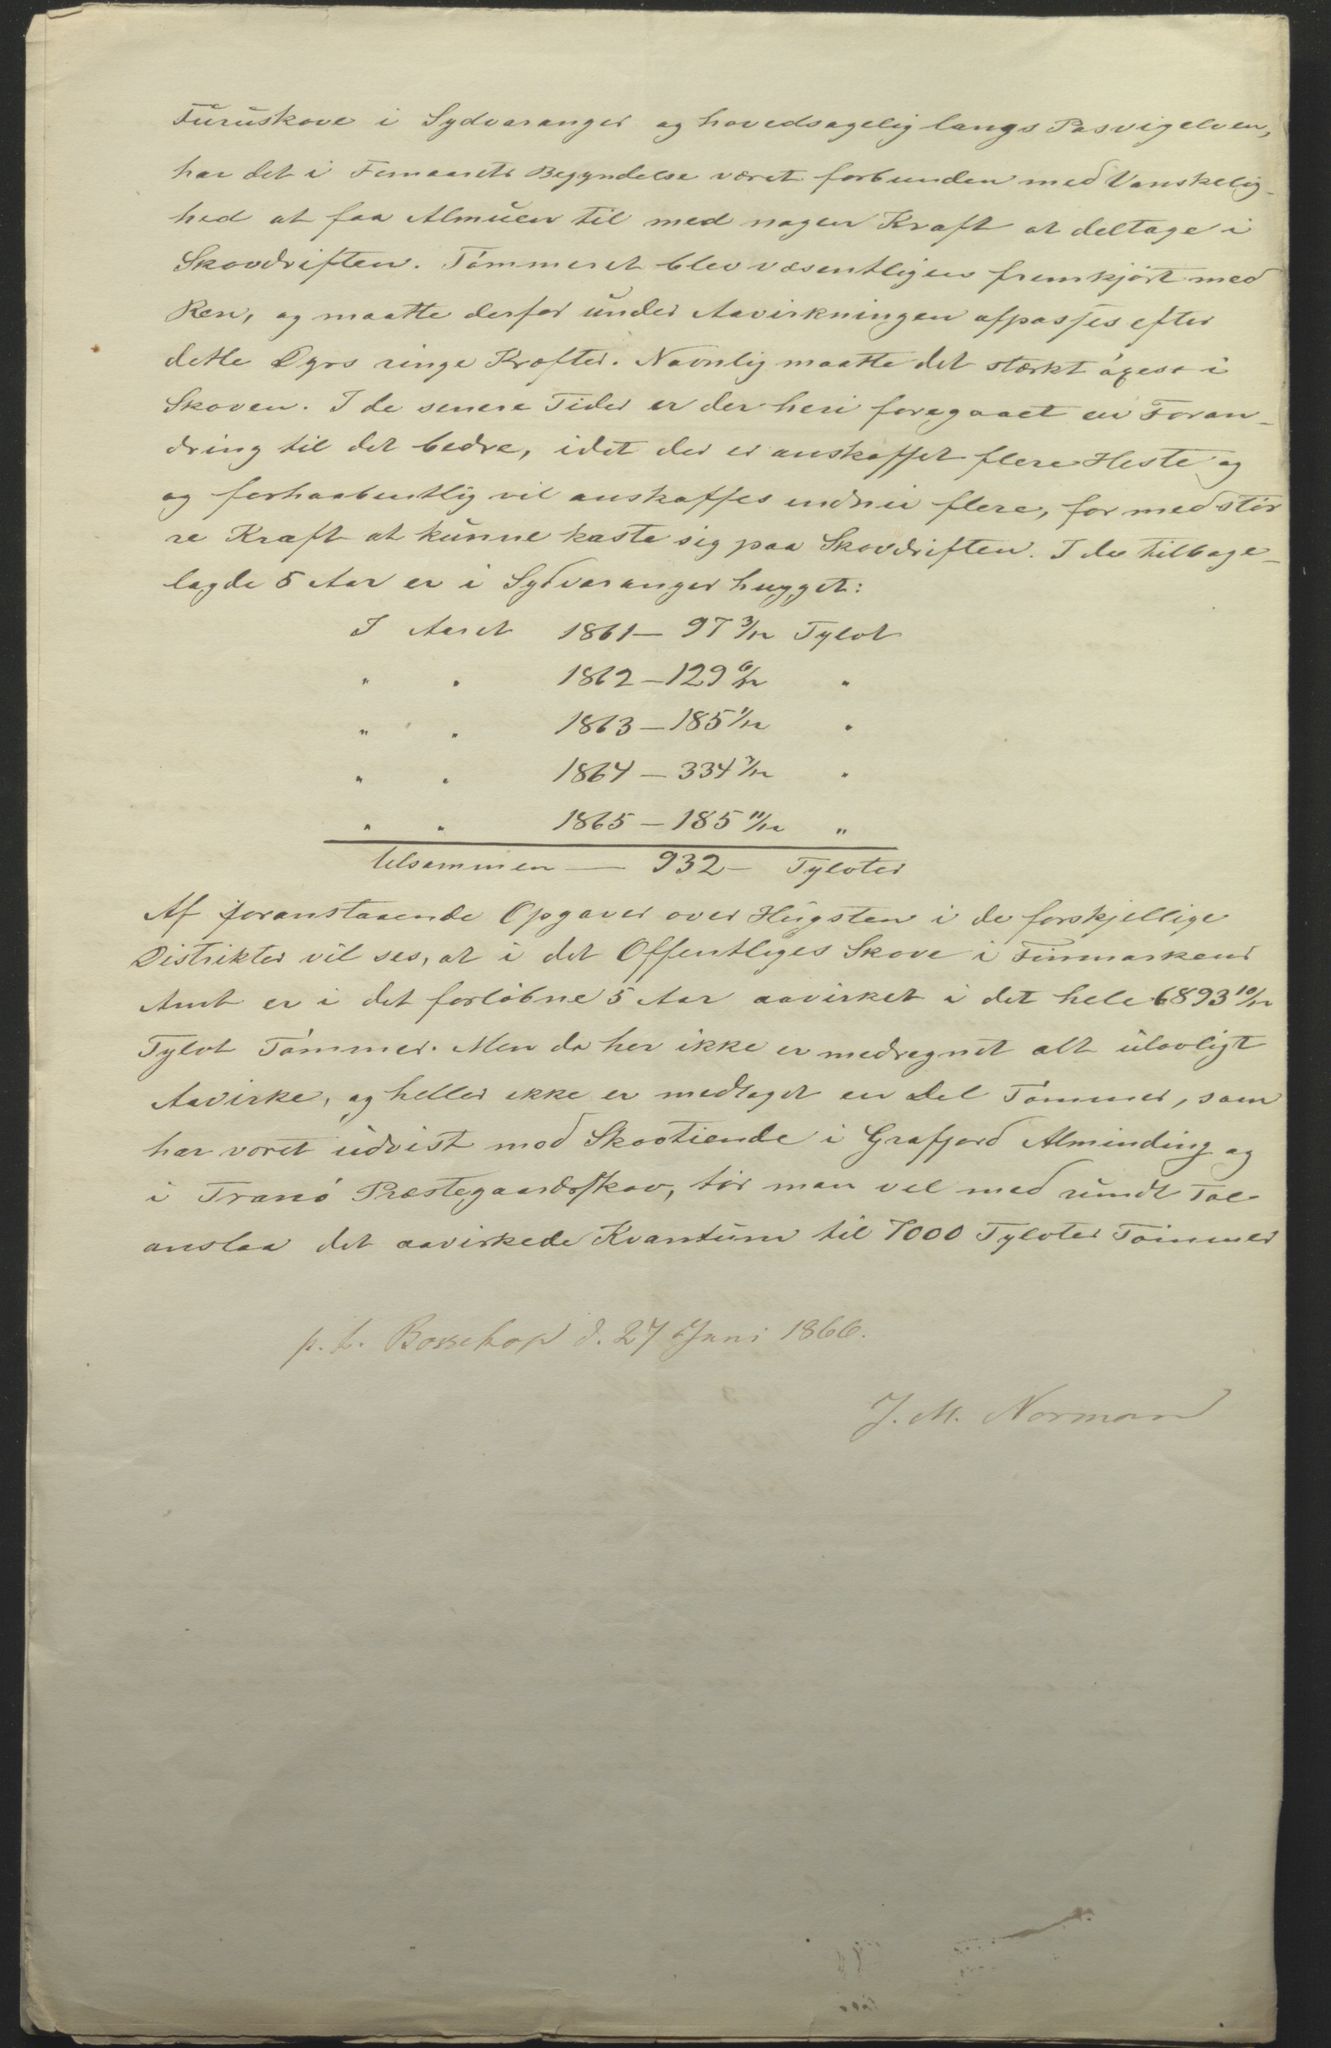 Furuskove i Sydvaranger og hovedsagelig langs Pasvigelven,
har det i Femaarets Begyndelse været forbunden med Vanskelig-
hed at faa Almuen til med nogen Kraft at deltage i
Skovdriften. Tømmeret blev væsentligen fremkjørt med
Ren, og maatte derfor under Aavirkningen afpasses efter
dette Dyrs ringe Kræfter. Navnlig maatte det stærkt øxes i
Skoven. I de senere Tider er der heri foregaaet en Foran-
dring til det bedre, idet der er anskaffet flere Heste og
og forhaabentlig vil anskaffes endnu flere, for med stør
re Kraft at kunne kaste sig paa Skovdriften. I de tilbage-
lagde 5 Aar er i Sydvaranger hugget:
I Aaret 1861 — 97 3/12 Tylvt
" " 1862 — 129 6/12 "
" " 1863 — 185 1/12 "
" " 1864 — 334 3/12 "
" " 1865 — 185 11/12 "
tilsammen — 932 — Tylvter
Af foranstaaende Opgaver over Hugsten i de forskjellige
Distrikter vil ses, at i det Offentliges Skove i Finmarkens
Amt er i det forløbne 5 Aar aavirket i det hele 6893 10/12
Tylvt Tømmer. Men da her ikke er medregnet alt ulovligt
Aavirke, og heller ikke er medtaget en Del Tømmer, som
har været udvist mod Skovtiende i Grafjord Alminding og
i Tranø Præstegaardsskov, tør man vel med rundt Tal
anslaa det aavirkede Kvantum til 7000 Tylvter Tømmer
p. t. Bossekop d. 27 Juni 1866.
J. M. Norman